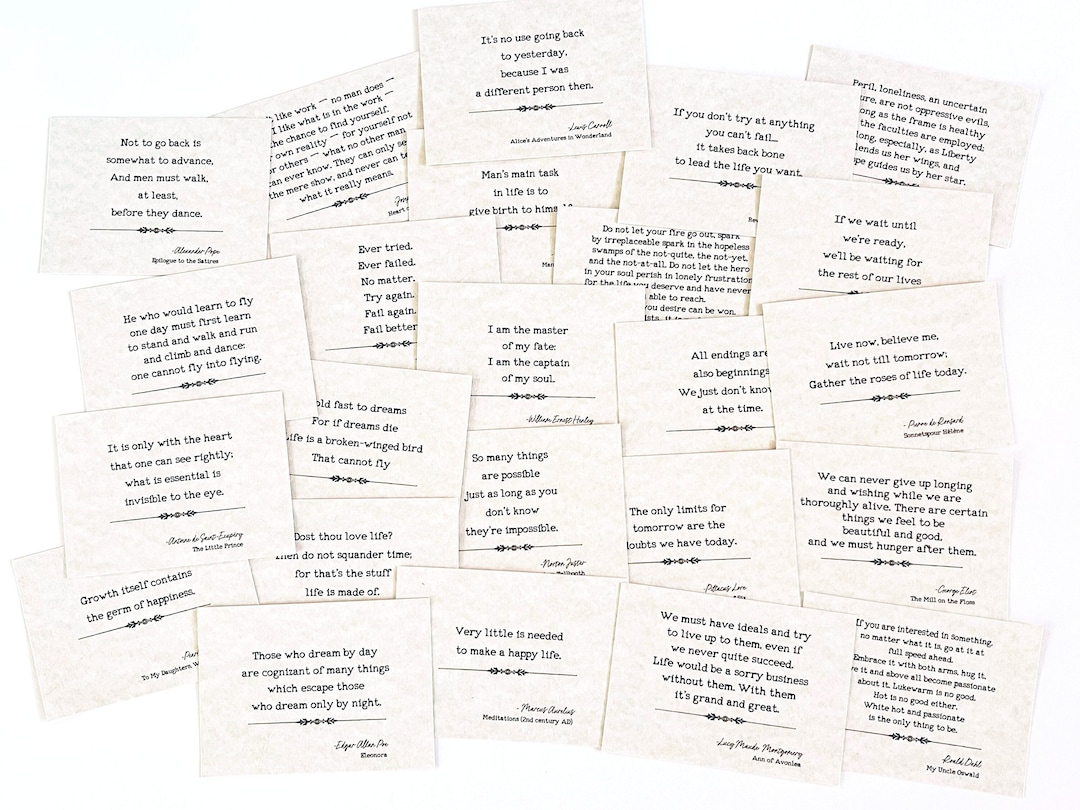 It's no use going back
to yesterday,
because I was
a different person then.
-Lewis Carroll
Alice's Adventures in Wonderland
like work — no man does —
I like what is in the work —
the chance to find yourself.
own reality — for yourself not
others — what no other man
ever know. They can only se
the mere show, and never can te
what it really means.
Heart
Not to go back is
somewhat to advance,
And men must walk,
at least,
before they dance.
-Alexander Pope
Epilogue to the Satires
Man's main task
in life is to
give birth to himself
Man
If you don't try at anything
you can't fail...
it takes back bone
to lead the life you want
Peril, loneliness, an uncertain
are not oppressive evils,
long as the frame is healthy
the faculties are employed;
long, especially, as Liberty
lends us her wings, and
guides us by her star.
If we wait until
we're ready,
we'll be waiting for
the rest of our lives
Ever tried.
Ever failed.
No matter.
Try again.
Fail again.
Fail better
Do not let your fire go out, spark
by irreplaceable spark in the hopeless
swamps of the not-quite, the not-yet,
and the not-at-all. Do not let the hero
in your soul perish in lonely frustration
for the life you deserve and have never
able to reach.
you desire can be won.
He who would learn to fly
one day must first learn
to stand and walk and run
and climb and dance;
one cannot fly into flying.
I am the master
of my fate:
I am the captain
of my soul.
-William Ernest Henley
All endings are
also beginnings
We just don't know
at the time.
Live now, believe me,
wait not till tomorrow;
Gather the roses of life today.
- Pierre de Ronsard
Sonnetspour Hélène
old fast to dreams
For if dreams die
Life is a broken-winged bird
That cannot fly
It is only with the heart
that one can see rightly;
what is essential is
invisible to the eye.
-Antoine de Saint-Exupéry
The Little Prince
So many things
are possible
just as long as you
don't know
they're impossible.
-Norton Juster
The only limits for
tomorrow are the
doubts we have today.
-Pittacus Lore
We can never give up longing
and wishing while we are
thoroughly alive. There are certain
things we feel to be
beautiful and good,
and we must hunger after them.
-George Eliot
The Mill on the Floss
Dost thou love life?
Then do not squander time;
for that's the stuff
life is made of.
Growth itself contains
the germ of happiness.
To My Daughters, W
Those who dream by day
are cognizant of many things
which escape those
who dream only by night.
-Edgar Allan Poe
Eleonora
Very little is needed
to make a happy life.
- Marcus Aurelius
Meditations (2nd century AD)
We must have ideals and try
to live up to them, even if
we never quite succeed.
Life would be a sorry business
without them. With them
it's grand and great.
-Lucy Maude Montgomery
Ann of Avonlea
If you are interested in something,
no matter what it is, go at it at
full speed ahead.
Embrace it with both arms, hug it,
it and above all become passionate
about it. Lukewarm is no good.
Hot is no good either.
White hot and passionate
is the only thing to be.
-Roald Dahl
My Uncle Oswald